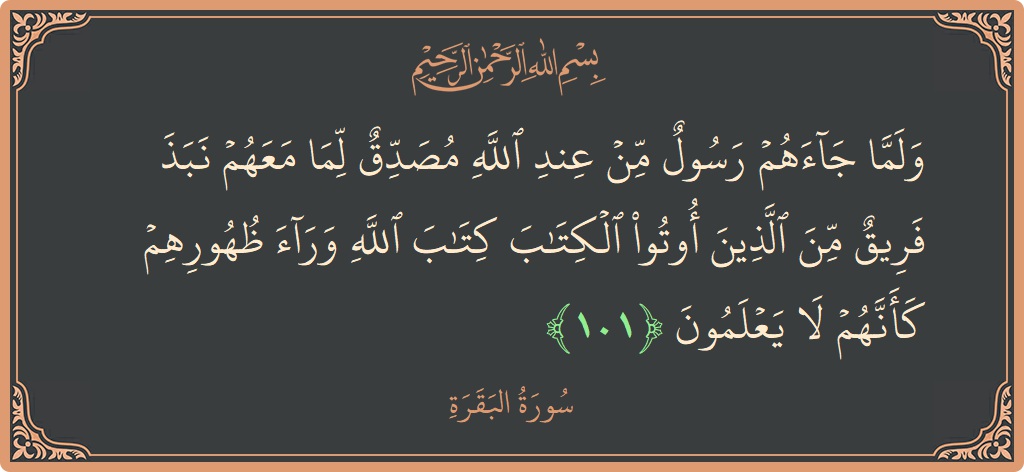 بِسْمِ اللهِ الرَّحْمٰنِ الرَّحِيْمِ
وَلَمَّا جَآءَهُمۡ رَسُولٌ مِّنۡ عِندِ ٱللَّهِ مُصَدِّقٌ لِّمَا مَعَهُمۡ نَبَذَ
فَرِيقٌ مِّنَ ٱلَّذِينَ أُوتُواْ ٱلۡكِتَٰبَ كِتَٰبَ ٱللَّهِ وَرَآءَ ظُهُورِهِمۡ
كَأَنَّهُمۡ لَا يَعۡلَمُونَ ﴿١٠١﴾
سُورَةُ البَقَرَةِ